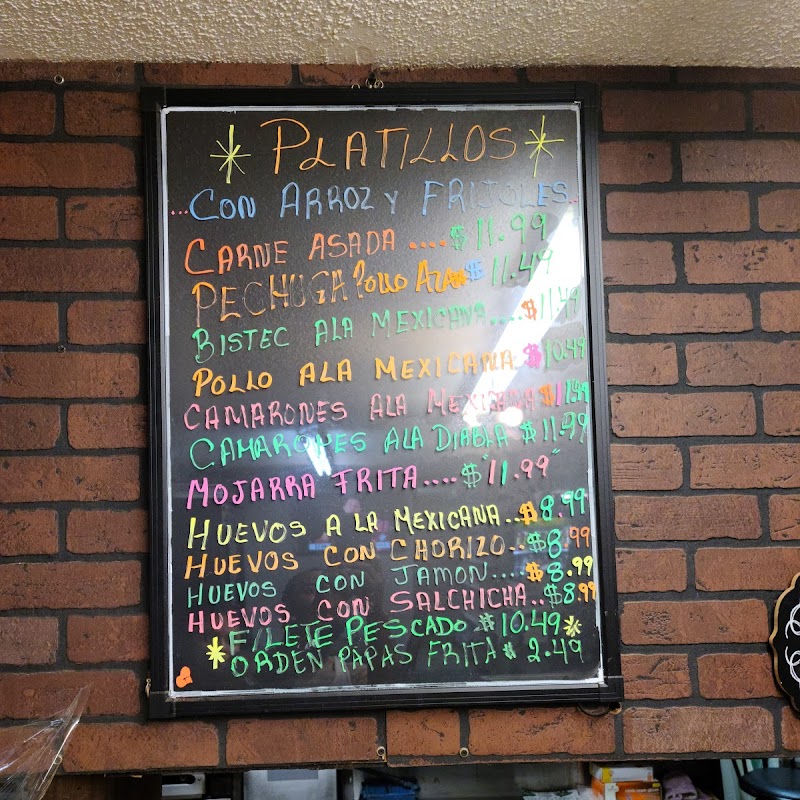 PLATILLOS
...CON ARROZ Y FRIJOLES...
CARNE ASADA ....$11.99
PECHUGA POLLO ASADA $11.49
BISTEC ALA MEXICANA....$11.49
POLLO ALA MEXICANA $10.49
CAMARONES ALA MEXICANA $11.99
CAMARONES ALA DIABLA $11.99
MOJARRA FRITA....$"11.99"
HUEVOS A LA MEXICANA..$8.99
HUEVOS CON CHORIZO..$8.99
HUEVOS CON JAMON....$8.99
HUEVOS CON SALCHICHA..$8.99
FILETE PESCADO $10.49
ORDEN PAPAS FRITA $2.49